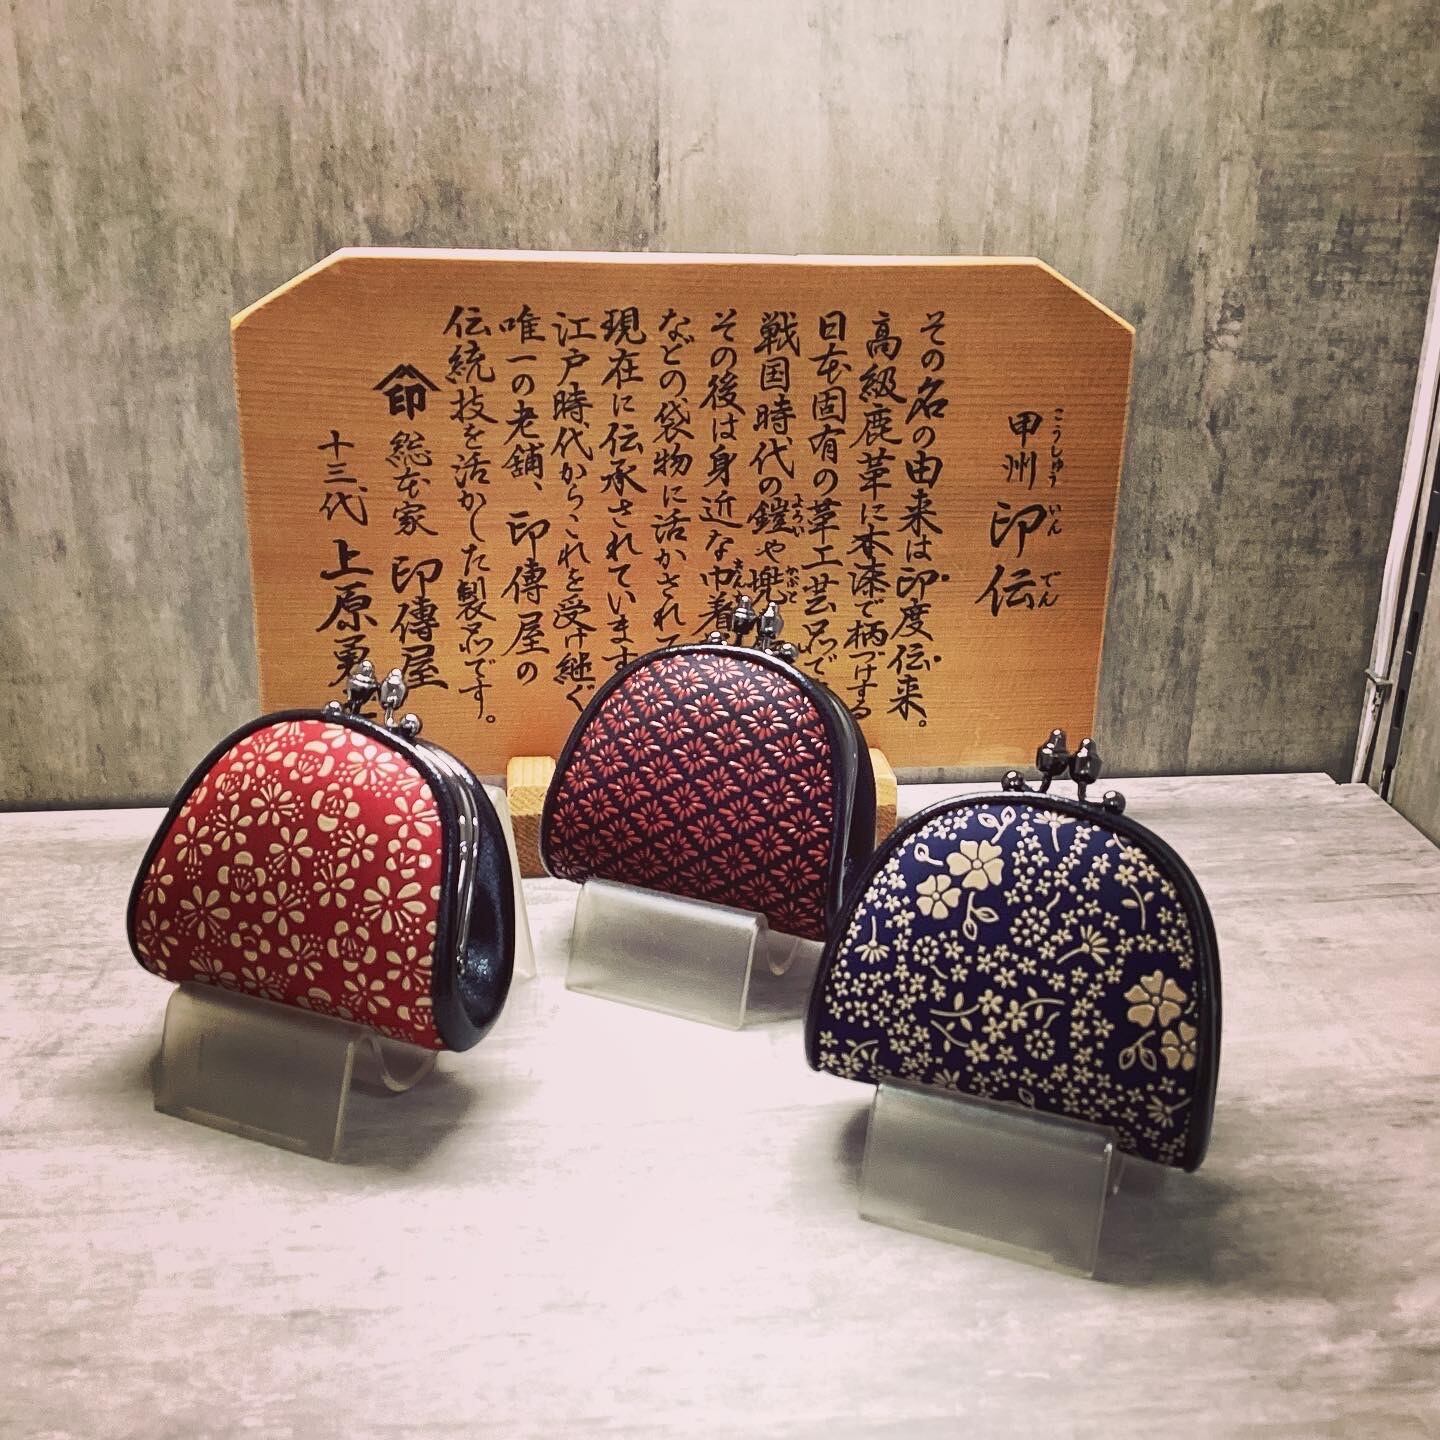 甲州印伝
こうしゅういんでん
その名の由来は印度伝来。
高級鹿革に本漆で柄づけする
日本固有の革工芸品で
戦国時代の鎧や兜
よろい
かぶと
その後は身近な巾着
などの袋物に活かされ
現在に伝承されています
江戸時代からこれを受け継ぐ
唯一の老舗、印傳屋の
伝統技を活かした製品です。
印 総本家 印傳屋
十三代 上原勇